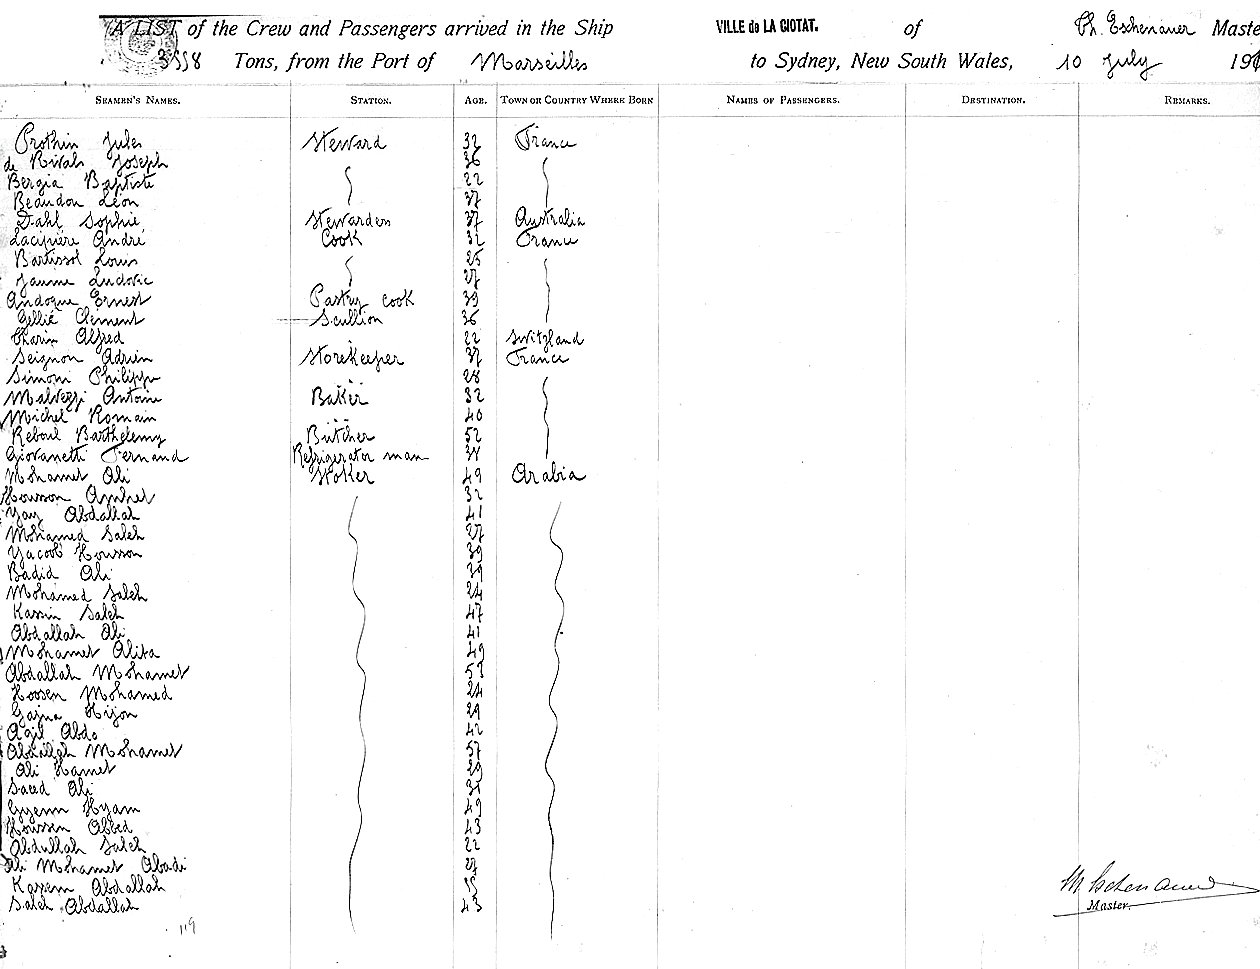 A LIST of the Crew and Passengers arrived in the Ship VILLE de LA CIOTAT. of Ch. Eschenauer Maste
3558 Tons, from the Port of Marseilles to Sydney, New South Wales, 10 July 19
SEAMEN'S NAMES. STATION. AGE. TOWN OR COUNTRY WHERE BORN NAMES OF PASSENGERS. DESTINATION. REMARKS.
Prothin Jules Steward 32 France
de Rivals Joseph 36
Bergia Baptiste 22
Beaudon Léon 37
Dahl Sophie Stewardess 37 Australia
Lacipière André Cook 32 France
Bartissol Louis 25
Jaume Ludovic 27
Andoque Ernest Pastry cook 39
Gellié Clement Scullion 36
Charin Alfred 22 Switzland
Seignon Adrien Storekeeper 37 France
Simoni Philippe 28
Malvezzi Antoine Baker 32
Michel Romain 40
Reboul Barthelemy Butcher 52
Giovanetti Fernand Refrigerator man
Mohamet Ali Stoker 49 Arabia
Housson 32
Abdallah 41
Mohamed Saleh 27
Yacoob Housson 39
Badid Ali 39
Mohamed Saleh 24
Kassin Saleh 47
Abdallah Ali 41
Mohamet Alita 49
Abdallah Mohamet 53
Hoosen Mohamed 24
29
Agil Abdo 42
Mohamet 57
Ali Hamet 29
Saed Ali
Hyam 49
Houssen Abbed 43
Abdullah Saleh 22
Ali Mohamet Abadi 27
Kassem Abdallah 35
Saleh Abdallah 43
Eschenauer
Master.
119